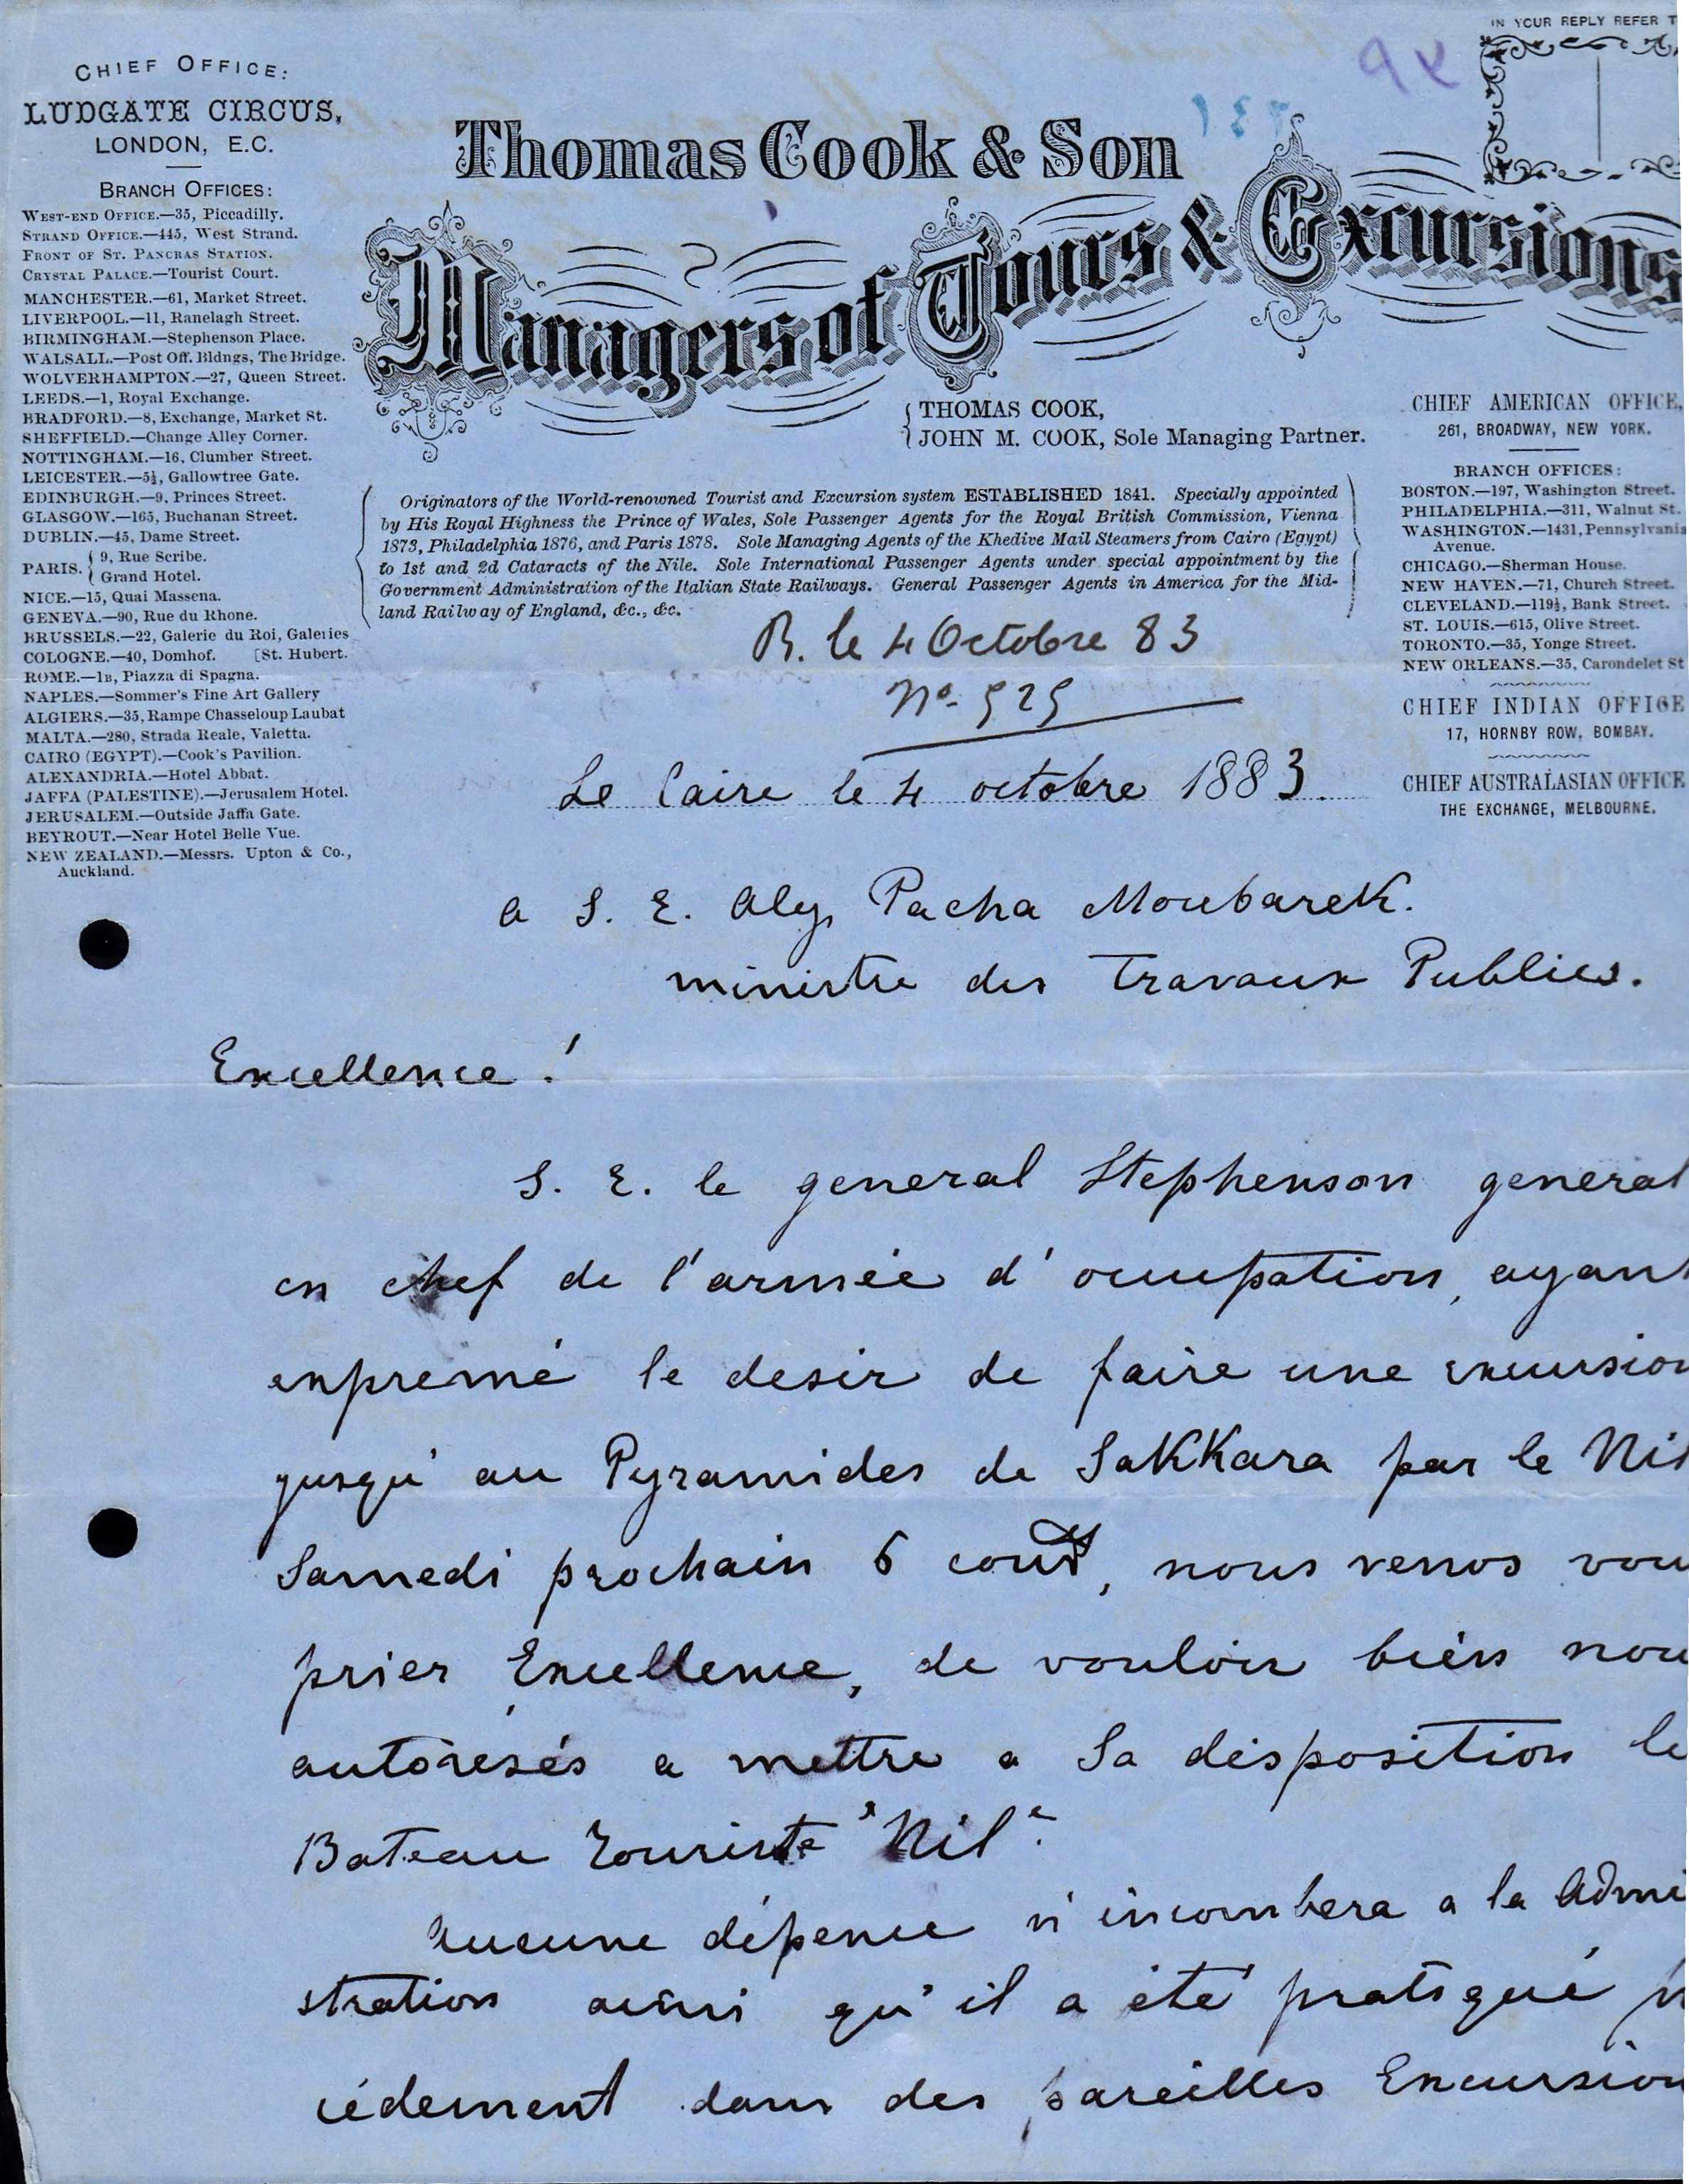 IN YOUR REPLY REFER T
CHIEF OFFICE:
LUDGATE CIRCUS,
LONDON, E.C.
BRANCH OFFICES:
WEST-END OFFICE.—35, Piccadilly.
STRAND OFFICE.—445, West Strand.
FRONT OF ST. PANCRAS STATION.
CRYSTAL PALACE.—Tourist Court.
MANCHESTER.—61, Market Street.
LIVERPOOL.—11, Ranelagh Street.
BIRMINGHAM.—Stephenson Place.
WALSALL.—Post Off. Bldngs, The Bridge.
WOLVERHAMPTON.—27, Queen Street.
LEEDS.—1, Royal Exchange.
BRADFORD.—8, Exchange, Market St.
SHEFFIELD.—Change Alley Corner.
NOTTINGHAM.—16, Clumber Street.
LEICESTER.—5½, Gallowtree Gate.
EDINBURGH.—9, Princes Street.
GLASGOW.—165, Buchanan Street.
DUBLIN.—45, Dame Street.
PARIS. { 9, Rue Scribe.
{ Grand Hotel.
NICE.—15, Quai Massena.
GENEVA.—90, Rue du Rhone.
BRUSSELS.—22, Galerie du Roi, Galeries
COLOGNE.—40, Domhof. [St. Hubert.
ROME.—1B, Piazza di Spagna.
NAPLES.—Sommer's Fine Art Gallery
ALGIERS.—35, Rampe Chasseloup Laubat
MALTA.—280, Strada Reale, Valetta.
CAIRO (EGYPT).—Cook's Pavilion.
ALEXANDRIA.—Hotel Abbat.
JAFFA (PALESTINE).—Jerusalem Hotel.
JERUSALEM.—Outside Jaffa Gate.
BEYROUT.—Near Hotel Belle Vue.
NEW ZEALAND.—Messrs. Upton & Co.,
Auckland.
Thomas Cook & Son
Managers of Tours & Excursions
{ THOMAS COOK,
{ JOHN M. COOK, Sole Managing Partner.
Originators of the World-renowned Tourist and Excursion system ESTABLISHED 1841. Specially appointed
by His Royal Highness the Prince of Wales, Sole Passenger Agents for the Royal British Commission, Vienna
1873, Philadelphia 1876, and Paris 1878. Sole Managing Agents of the Khedive Mail Steamers from Cairo (Egypt)
to 1st and 2d Cataracts of the Nile. Sole International Passenger Agents under special appointment by the
Government Administration of the Italian State Railways. General Passenger Agents in America for the Mid-
land Railway of England, &c., &c.
CHIEF AMERICAN OFFICE,
261, BROADWAY, NEW YORK.
BRANCH OFFICES:
BOSTON.—197, Washington Street.
PHILADELPHIA.—311, Walnut St.
WASHINGTON.—1431, Pennsylvania
Avenue.
CHICAGO.—Sherman House.
NEW HAVEN.—71, Church Street.
CLEVELAND.—119½, Bank Street.
ST. LOUIS.—615, Olive Street.
TORONTO.—35, Yonge Street.
NEW ORLEANS.—35, Carondelet St
CHIEF INDIAN OFFICE
17, HORNBY ROW, BOMBAY.
CHIEF AUSTRALASIAN OFFICE
THE EXCHANGE, MELBOURNE.
R. le 4 Octobre 83
No. 525
Le Caire le 4 octobre 1883.
a S. E. Aly Pacha Moubarek.
ministre des Travaux Publics.
Excellence!
S. E. le general Stephenson general
en chef de l'armée d'occupation, ayant
expremé le desir de faire une excursion
jusqu'au Pyramides de Sakkara par le Nil
Samedi prochain 6 court, nous venos vou
prier Excellence, de vouloir bien nou
autoresés a mettre a sa desposition le
Bateau Touriste "Nil".
Aucune dépence n'incombera a la Admi
stration ainsi qu'il a été pratiqué
cédement dans des pareilles Excursion